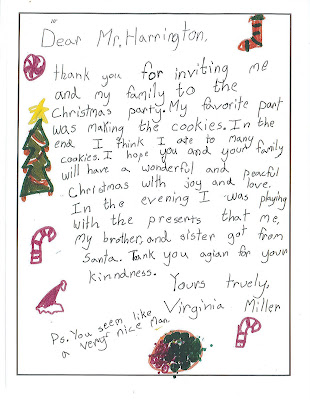 Dear Mr. Harrington,
thank you for inviting me
and my family to the
Christmas party. My favorite part
was making the cookies. In the
end I think I ate to many
cookies. I hope you and your family
will have a wonderful and peacful
Christmas with joy and love.
In the evening I was playing
with the presents that me,
my brother, and sister got from
Santa. Tank you agian for your
kinndness.
Yours truely,
Virginia Miller
Ps. You seem like
a very nice man.